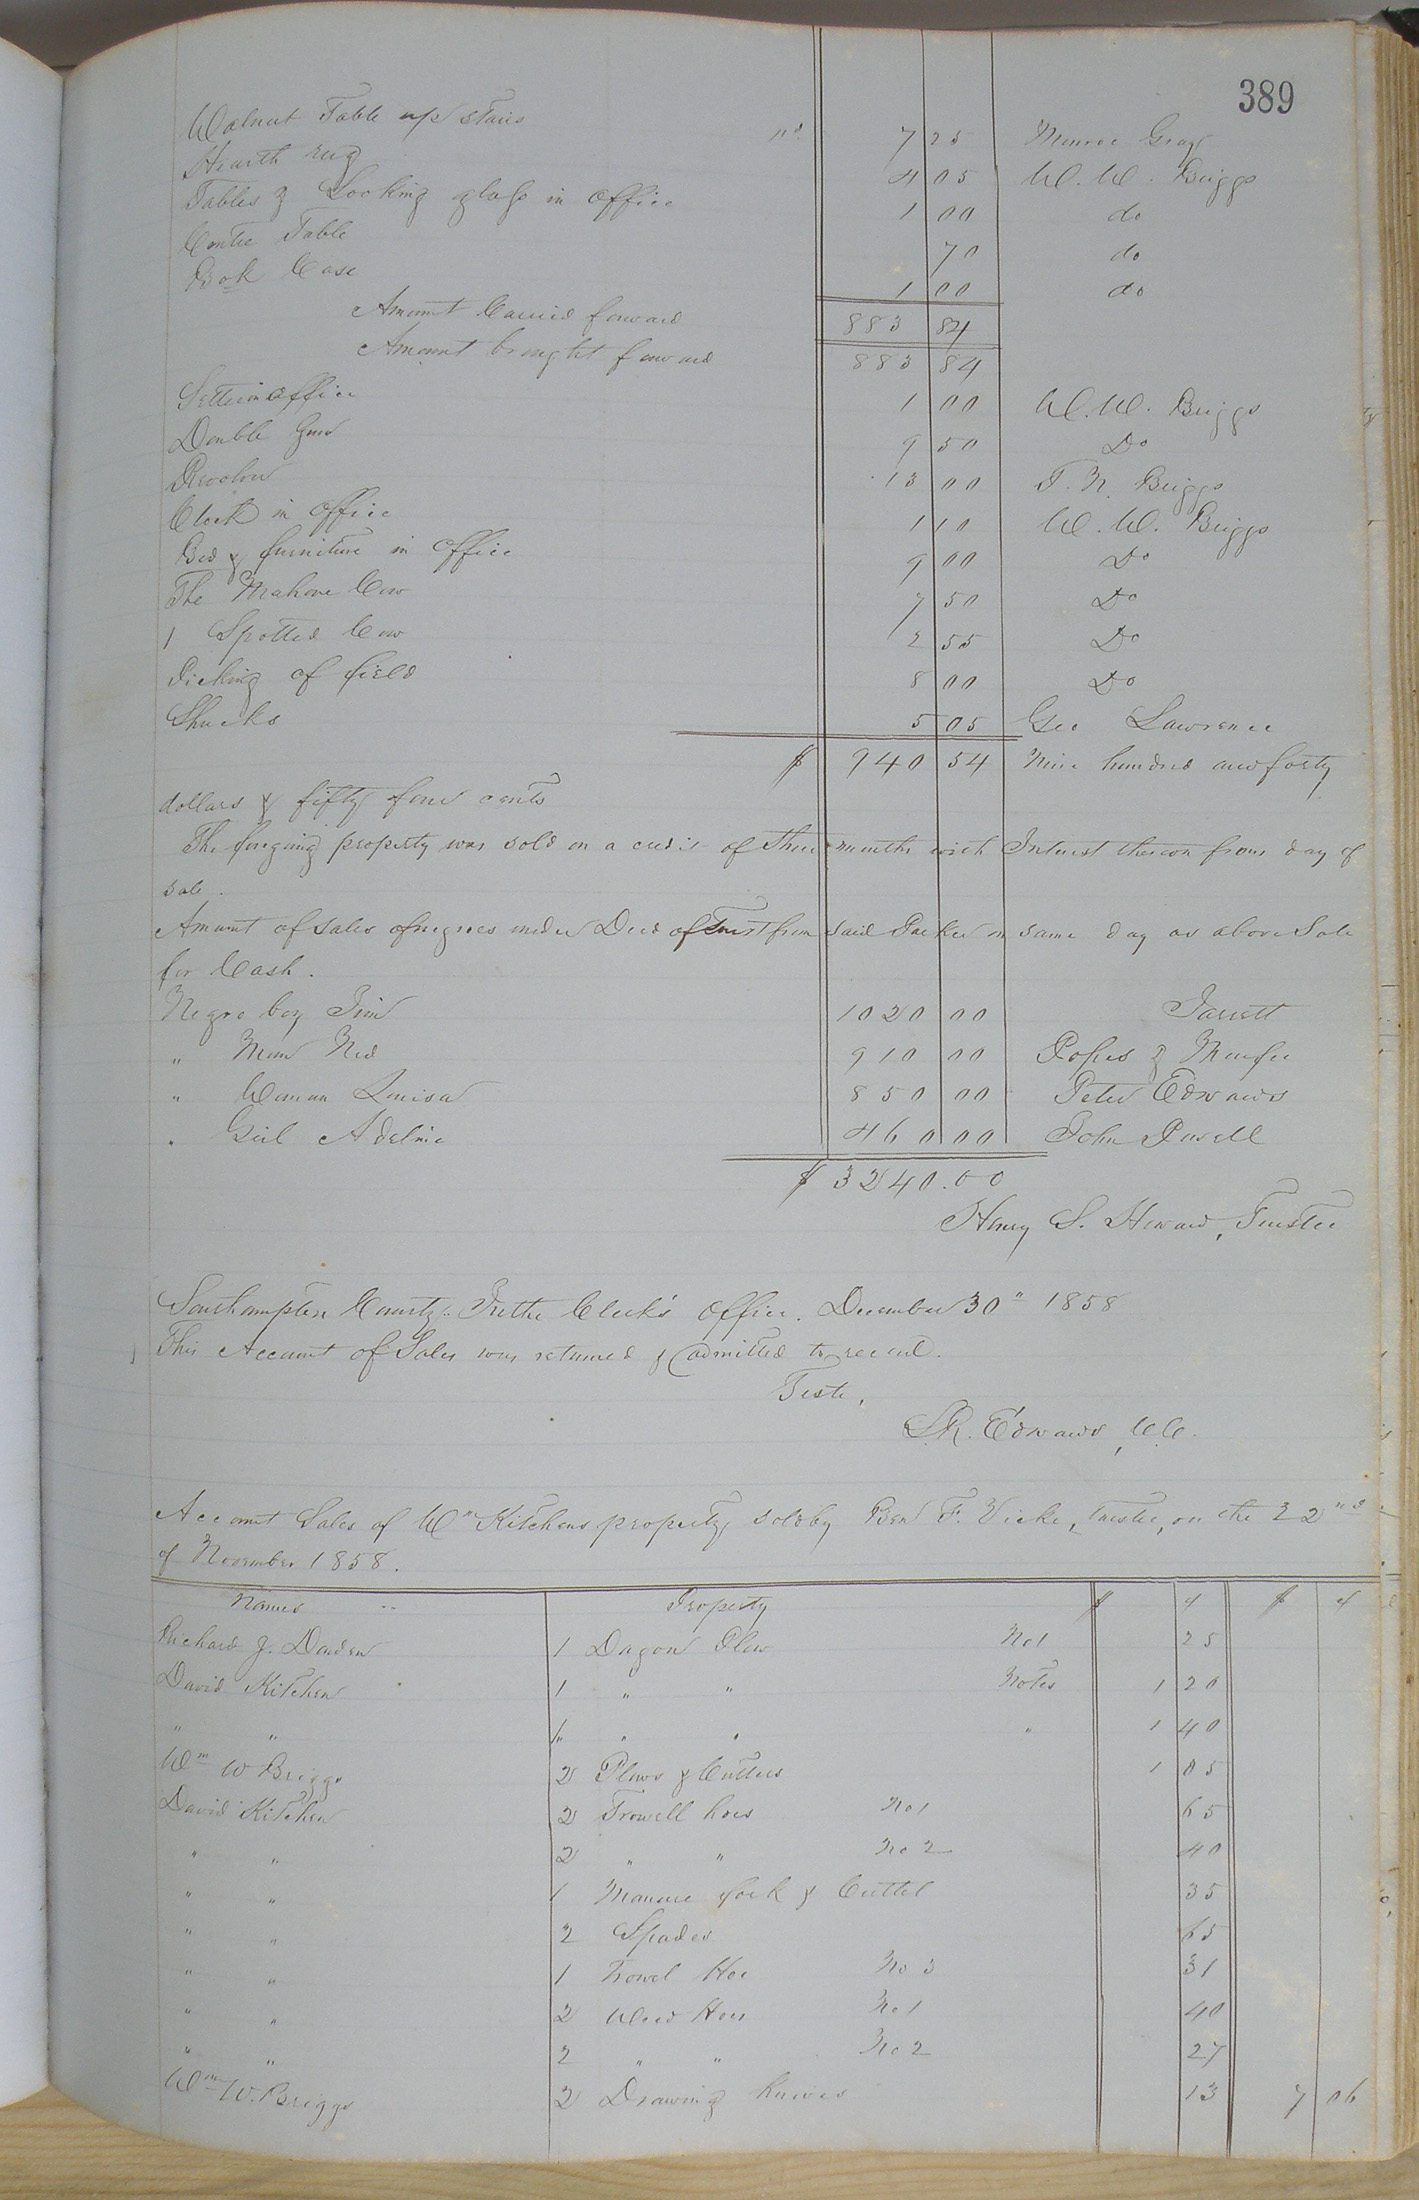 389
Walnut Table up stairs 7 25 Monroe Gray
Hearth rug 4 05 W. W. Briggs
Tables & Looking glass in office 1 00 do
Centre Table 70 do
Book Case 1 00 do
Amount Carried forward 883 84
Amount brought forward 883 84
Settee in office 1 00 W. W. Briggs
Double Gun 9 50 Do
Revolver 13 00 T. N. Briggs
Clock in office 1 10 W. W. Briggs
Bed & furniture in office 9 00 Do
The Mahone Cow 7 50 Do
1 Spotted Cow 2 55 Do
Picking of field 8 00 Do
Shucks 5 05 Geo Lawrence
$ 940 54 Nine hundred and forty
dollars & fifty four cents
The foregoing property was sold on a credit of three months with Interest thereon from day of
sale.
Amount of sales of negroes under Deed of Trust from said Parker on same day as above Sale
for Cash.
Negro boy Jim 1020 00 Jarrett
" Man Ned 910 00 Popes &
" Woman Louisa 850 00 Peter Edwards
" Girl 460 00 John Powell
$ 3240.00
Henry S. Howard, Trustee
Southampton County: In the Clerk's office. December 30" 1858
This Account of Sales was returned & admitted to record.
Teste,
L.R. Edwards, C.C.
Account Sales of Wm Kitchens property, sold by Ben F. Vicke, trustee, on the 22nd
of November 1858.
Names Property $ ¢ $ ¢
Richard J. Darden 1 Dagon Plow No 1 25
David Kitchen 1 " " Notes 1 20
" " 1 " " " 1 40
Wm W Briggs 2 Plows & Cutters 1 05
David Kitchen 2 Trowell hoes No 1 65
" " 2 " " No 2 40
" " 1 Manure fork & Cuttel 35
" " 2 Spades 65
" " 1 Trowel Hoe No 3 31
" " 2 Weed Hoes No 1 40
" " 2 " " No 2 27
Wm W. Briggs 2 Drawing knives 13 7 06